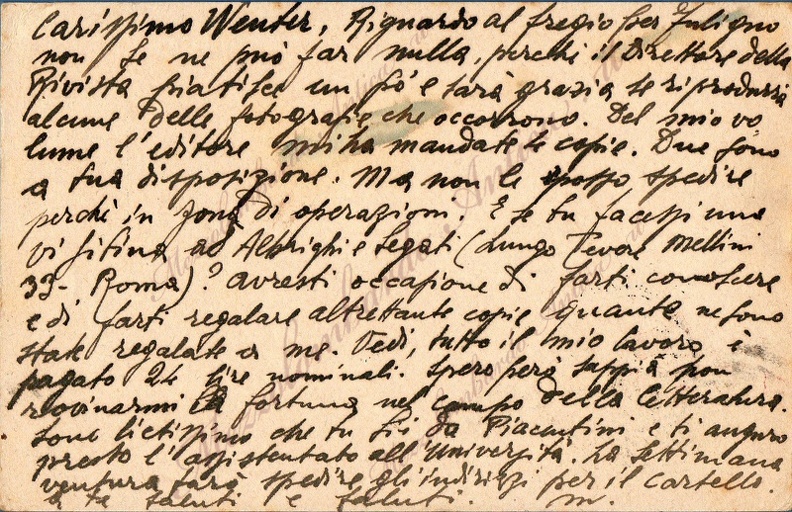 Carissimo Wenter, Riguardo al fregio per Fuligno
non se ne può far nulla, perchè il Direttore della
Rivista fiatisce un pò e sarà grazia se riprodurrà
alcune delle fotografie che occorrono. Del mio vo
lume l'editore mi ha mandate le copie. Due sono
a tua disposizione. Ma non le posso spedire
perchè in zona di operazioni. E se tu facessi una
visitina ad Albrighi e Segati (Lungo Tevere Mellini
33 - Roma)? avresti occasione di farti conoscere
e di farti regalare altrettante copie quante ne sono
state regalate a me. Vedi, tutto il mio lavoro è
pagato 24 lire nominali. Spero però sappia pon
rovinarmi la fortuna nel campo della letteratura.
Sono lietissimo che tu sii da Piacentini e ti auguro
presto l'assistentato all'Università. La settimana
ventura farò spedire gli indirizzi per il cartello.
a te saluti e saluti. M.